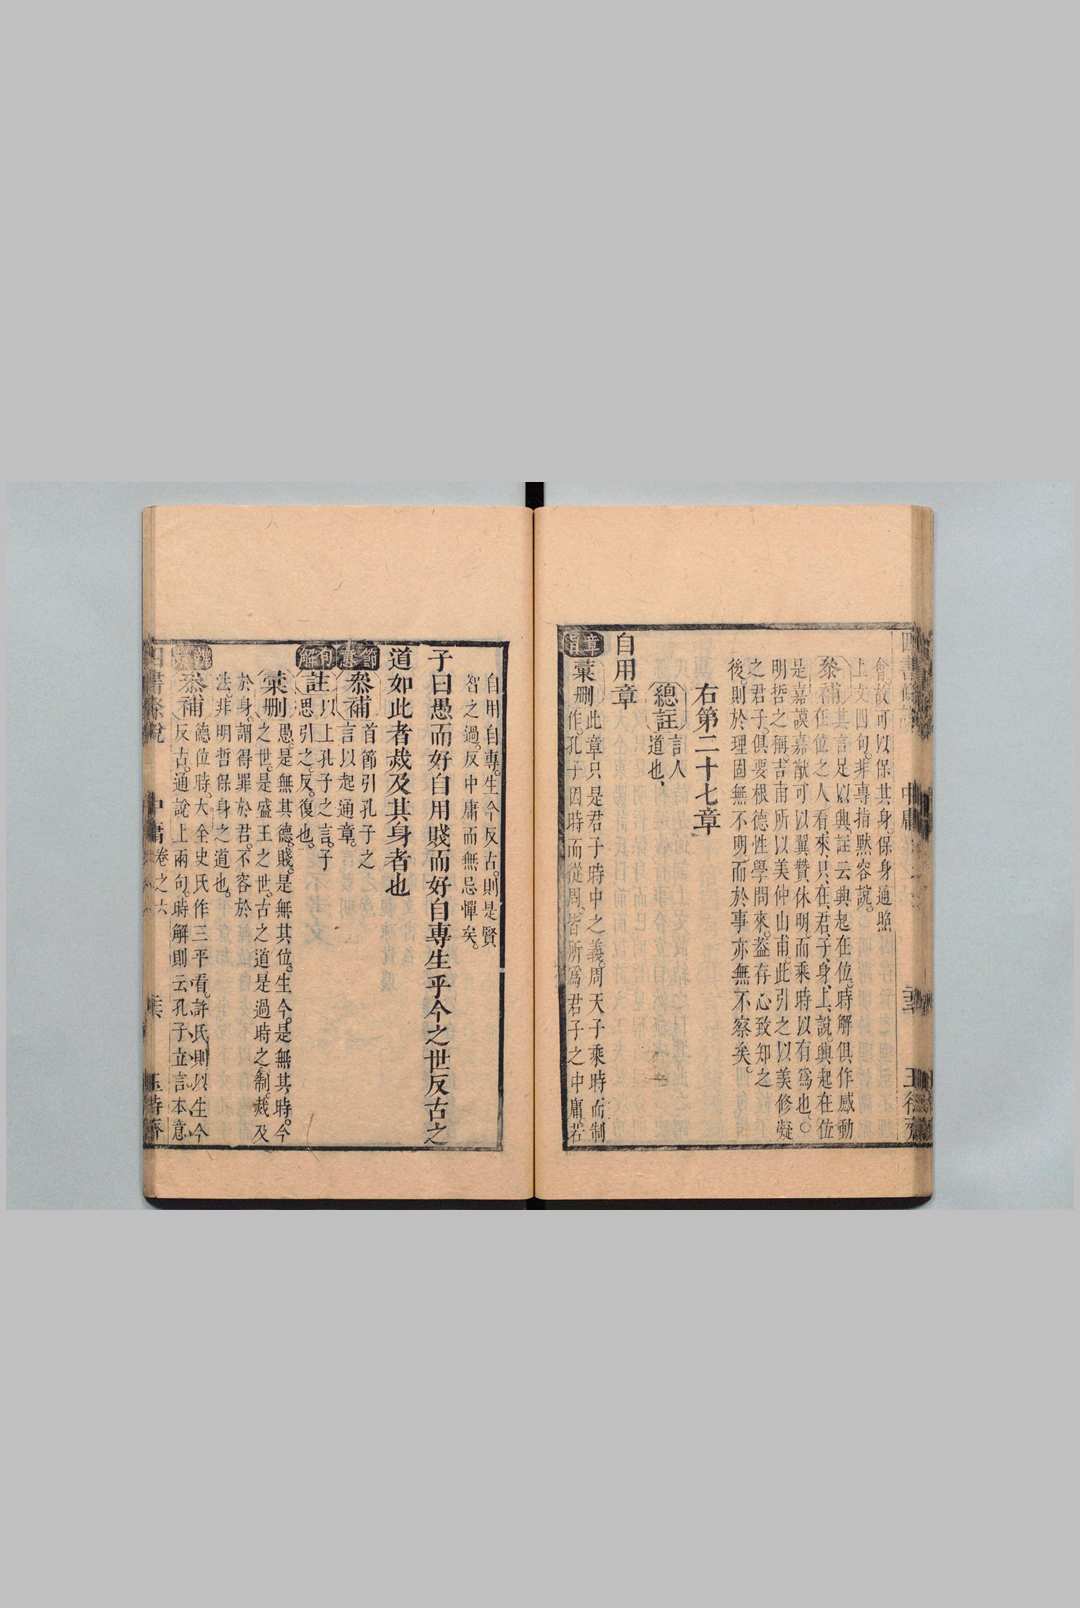 侖故可以保其身保身適照
上文四句非專指默容說
叅補 其言足以興註云興起在位時解俱作感動
在位之人看來只在君子身上說興起在位
是嘉謨嘉猷可以翼贊休明而乘時以有爲也○
明哲之稱吉甫所以美仲山甫此引之以美修凝
之君子俱要根德性學問來葢存心致知之
後則於理固無不明而於事亦無不察矣
右第二十七章
總註 言人
道也
自用章
章旨 藁刪 此章只是君子時中之義周天子乘時而制
作孔子因時而從周皆所爲君子之中庸若
自用自專生今反古則是賢
智之過反中庸而無忌憚矣
子曰愚而好自用賤而好自專生乎今之世反古之
道如此者烖及其身者也
節意 叅補 首節引孔子之
言以起通章
句解 註 以上孔子之言子
思引之反復也
藁刪 愚是無其德賤是無其位生今是無其時今
之世是盛王之世古之道是過時之制烖及
於身謂得罪於君不容於
法非明哲保身之道也
叅補 德位時大全史氏作三平看許氏則以生今
反古通說上兩句時解則云孔子立言本意
四書條說 中庸卷之六 玉特齋